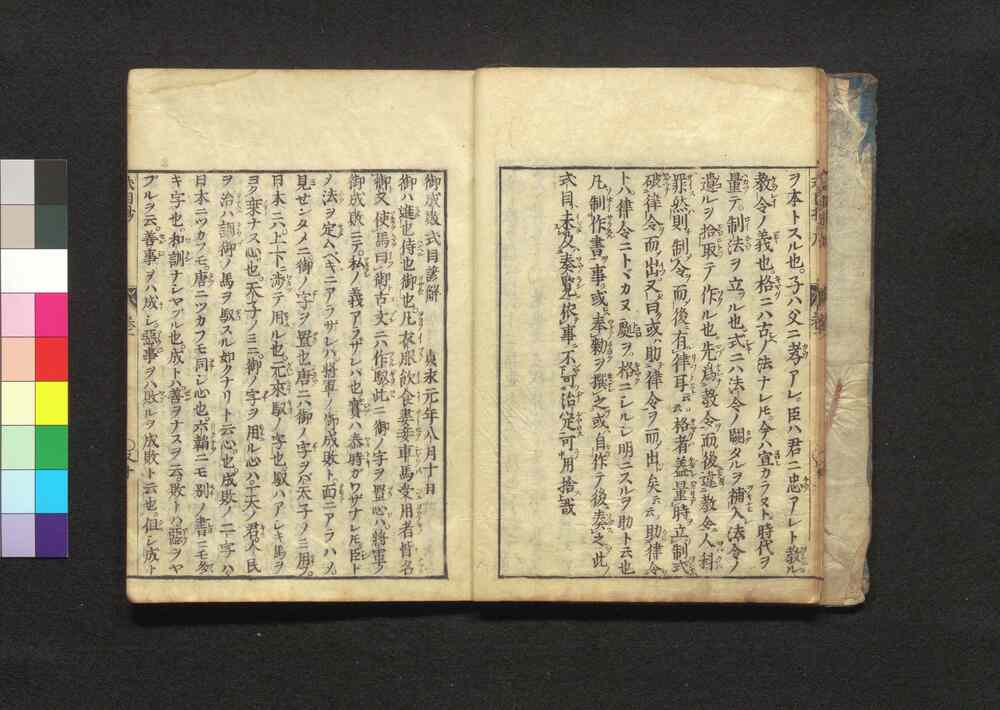 ヲ本トスル也。子ハ父ニ孝アレ。臣ハ君ニ忠アレト教ル
教令ノ義也。格ニハ古ノ法ナレ𪜈今ハ宜カラスト時代ヲ
量テ制法ヲ立ル也。式ニハ法令ノ闕タルヲ補入法令ノ
遺ルヲ拾取テ作ル也。先為教令而後違教令人科
罪然則制令而後有律耳云云格者蓋量時立制式
破律令而出又曰或助律令ヲ而出矣云云助律令
トハ律令ニトヾカヌ処ヲ格ニシルシ明ニスルヲ助ト云也
凡制作書事或奉勅ヲ撰之或自作テ後奏之此
式目未久奏覧依事不可治定可用捨哉
御成敗式目諺解 貞永元年八月十日
御ハ進也侍也御也凡衣服飲食妻妾車馬愛用者皆名
御又使馬曰御古文ニハ作馭此ニ御ノ字ヲ置心ハ将軍ノ
御成敗ニテ私ノ義アラザレハ也實ハ泰時ガワザナレ𪜈臣ト
〆法ヲ定ヘキニアラザレハ将軍ノ御成敗ト面ニアラハ〆
見センタメニ御ノ字ヲ置也唐ニハ御ノ字ヲバ天子ノミ用フ。
日本ニハ上下ニ渉テ用ル也元来馭ノ字也馭ハアレキ馬ヲ
ヨク乗ナス心也。天子ノミニ御ノ字ヲ用ル心ハ天ノ君八民
ヲ治ハ調御ノ馬ヲ馭スル如クナリト云心也成敗ノ二字ハ
日本ニツカフモ唐ニツカフモ同シ心也。
キ字也和訓ナシヤブル也。成トハ善ヲナスヲ云敗トハ悪ヲヤ
ブルヲ云。善事ヲハ成シ悪事ヲハ敗ルヲ成敗ト云也。但シ成ト